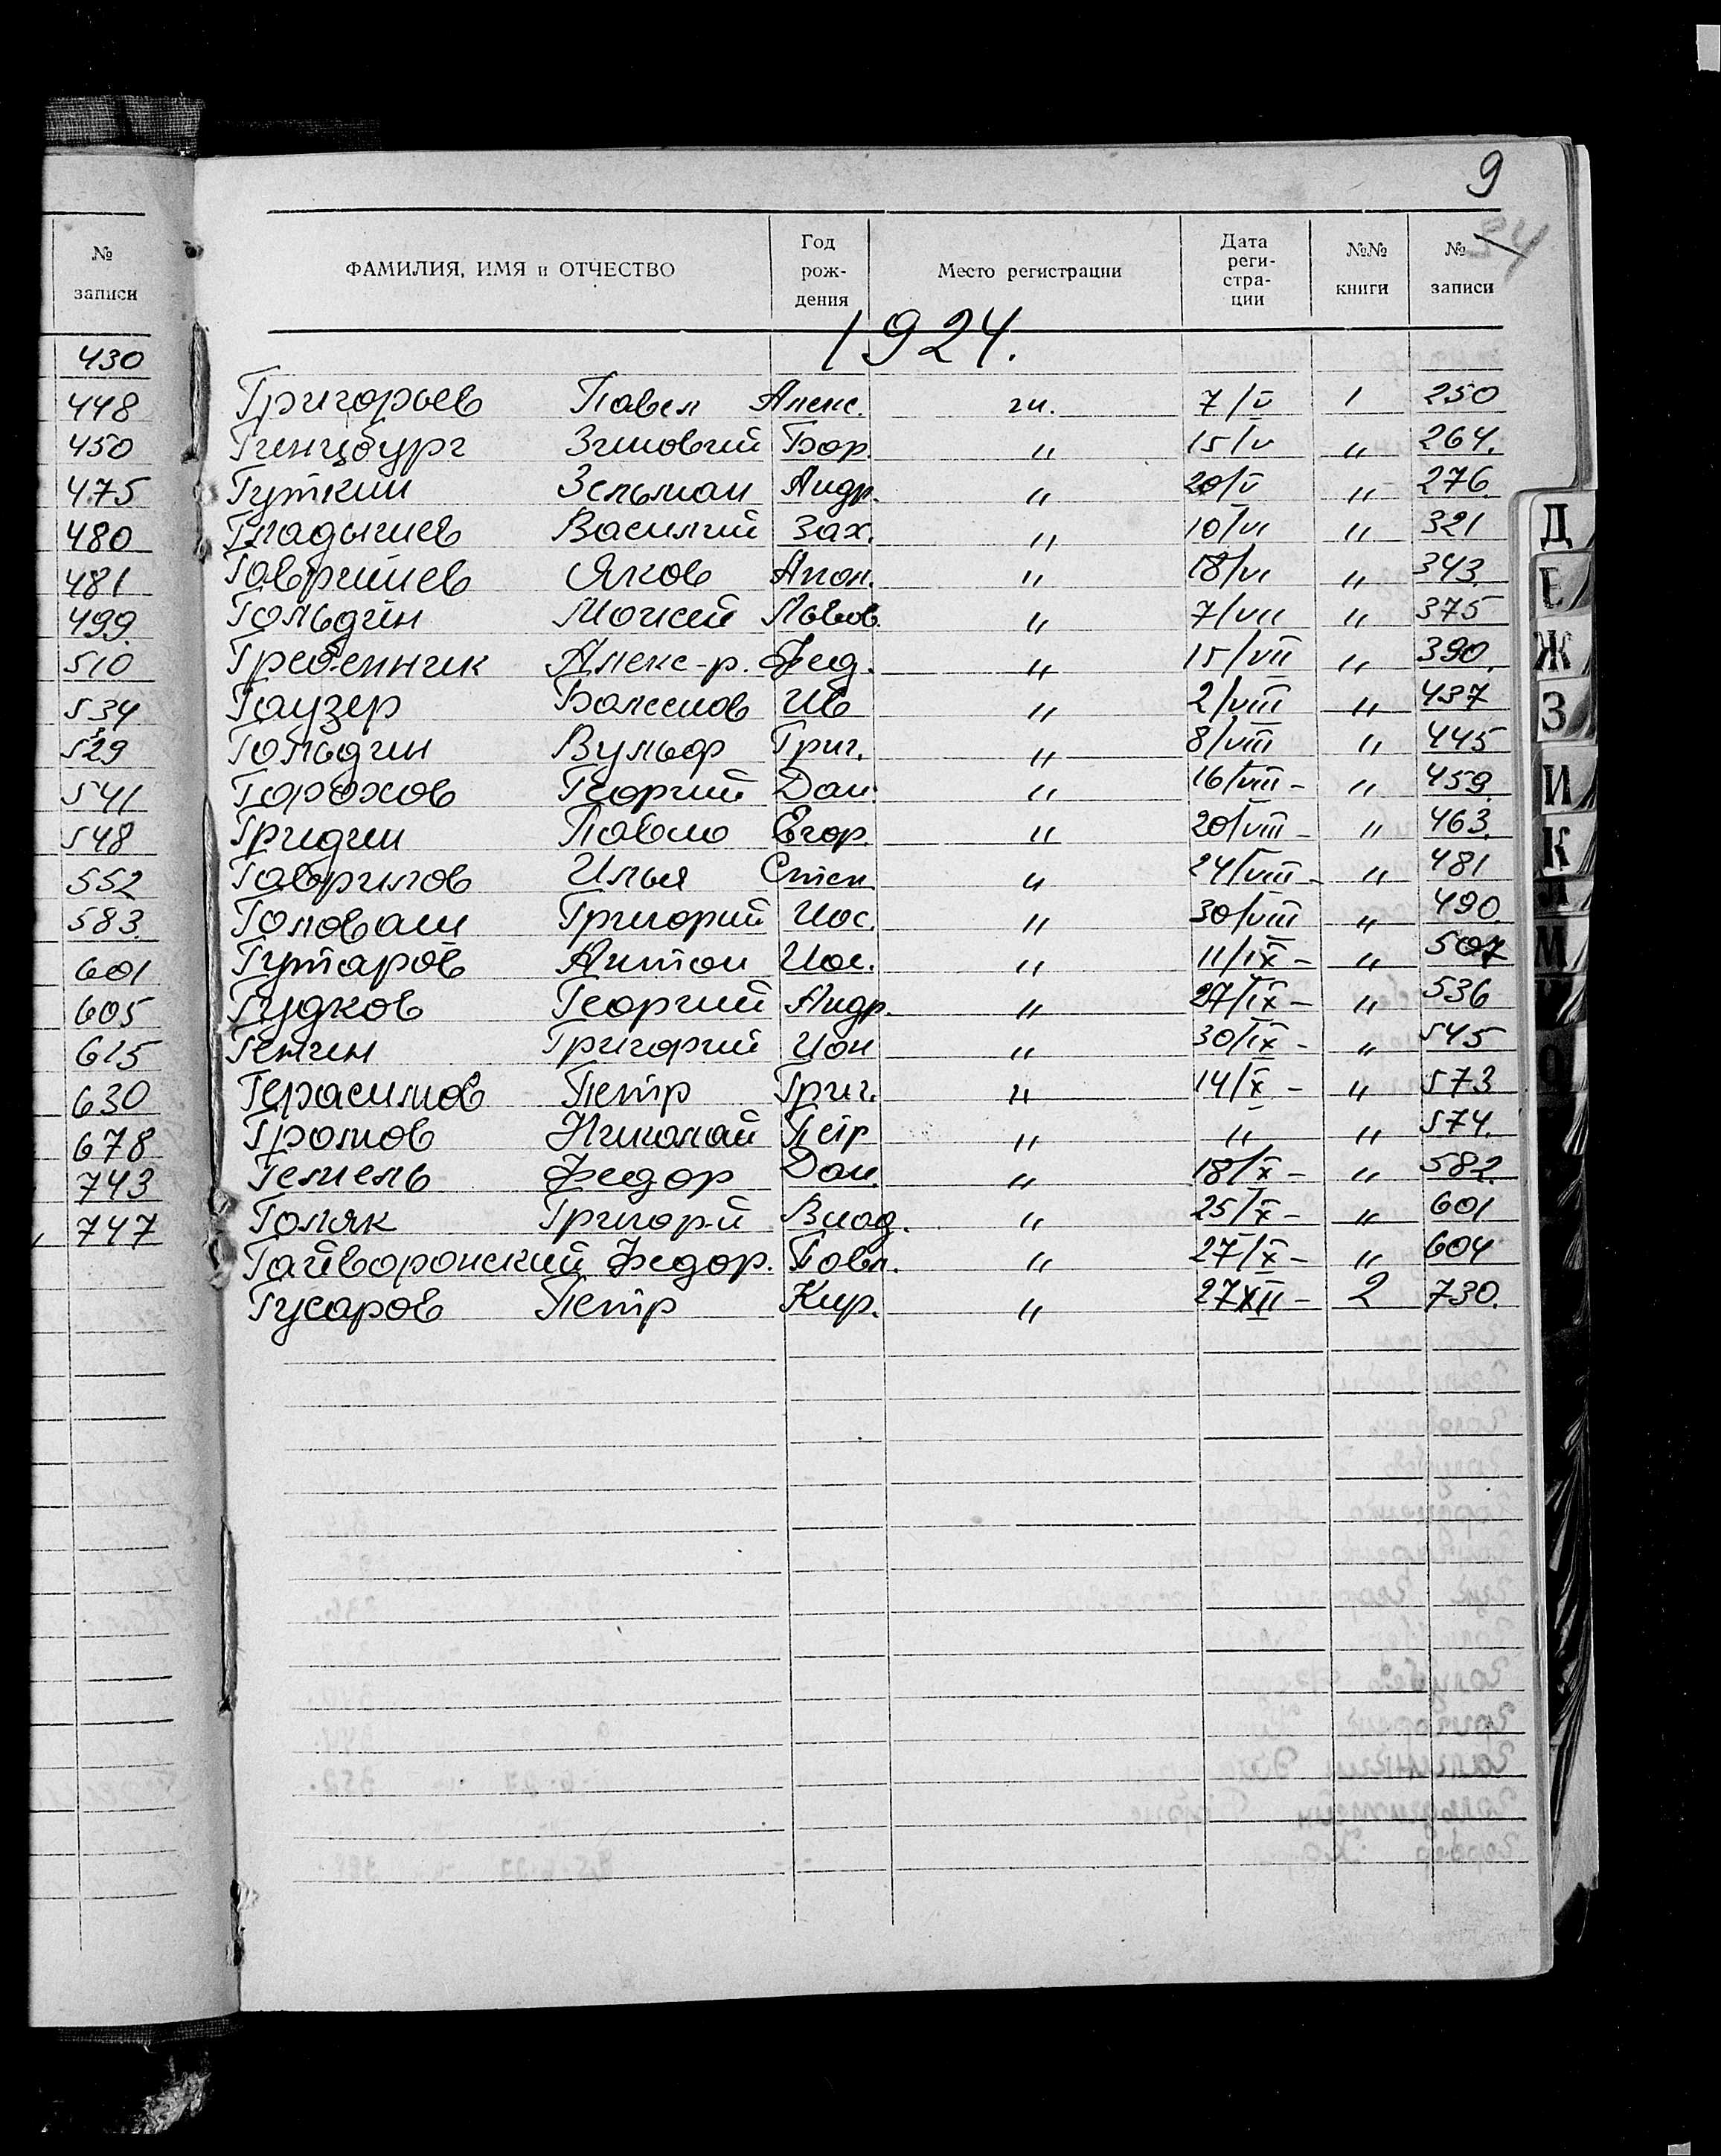 9
54
№ записи
ФАМИЛИЯ, ИМЯ и ОТЧЕСТВО Год рож-дения Место регистрации Дата реги-стра-ции №№ книги № записи
1924.
430
448
450
475
480
481
499.
510
534
529
541
548
552
583.
601
605
615
630
678
743
747
Григорьев Павел Алекс. гн. 7/V 1 250
Гинцбург Зиновий Бор. " 15/V " 264.
Гуткин Зельман Андр. " 20/V " 276.
Гладышев Василий Зах. " 10/VI " 321
Гавришев Яков Апол. " 18/VI " 343.
Гольдин Моисей Львов. " 7/VII " 375
Гребенник Алекс-р. Фед. " 15/VII " 390.
Гаузер Ив " 2/VIII " 437
Гольдин Вульф Григ. " 8/VIII " 445
Горохов Георгий Дан. " 16/VIII - " 459.
Гридин Павло Егор. " 20/VIII - " 463.
Гаврилов Илья Степ " 24/VIII - " 481
Головаш Григорий Иос. " 30/VIII " 490.
Гутаров Антон Иос. " 11/IX - " 507
Гудков Георгий Андр. " 27/IX - " 536
Генин Григорий Ион " 30/IX - " 545
Герасимов Петр Григ. " 14/X - " 573
Громов Николай Петр " " " 574.
Гемель Федор Дан. " 18/X - " 582.
Голяк Григор-й Влад. " 25/X - " 601
Гайворонский Федор. Павл. " 27/X - " 604
Гусаров Петр Кир. " 27XII - 2 730.
Д
Е
Ж
З
И
К
Л
М
О